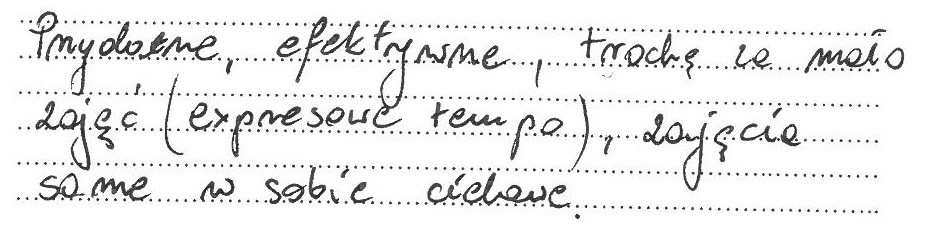 Przydatne, efektywne, trochę za mało
zajęć (expresowe tempo), zajęcia
same w sobie ciekawe.